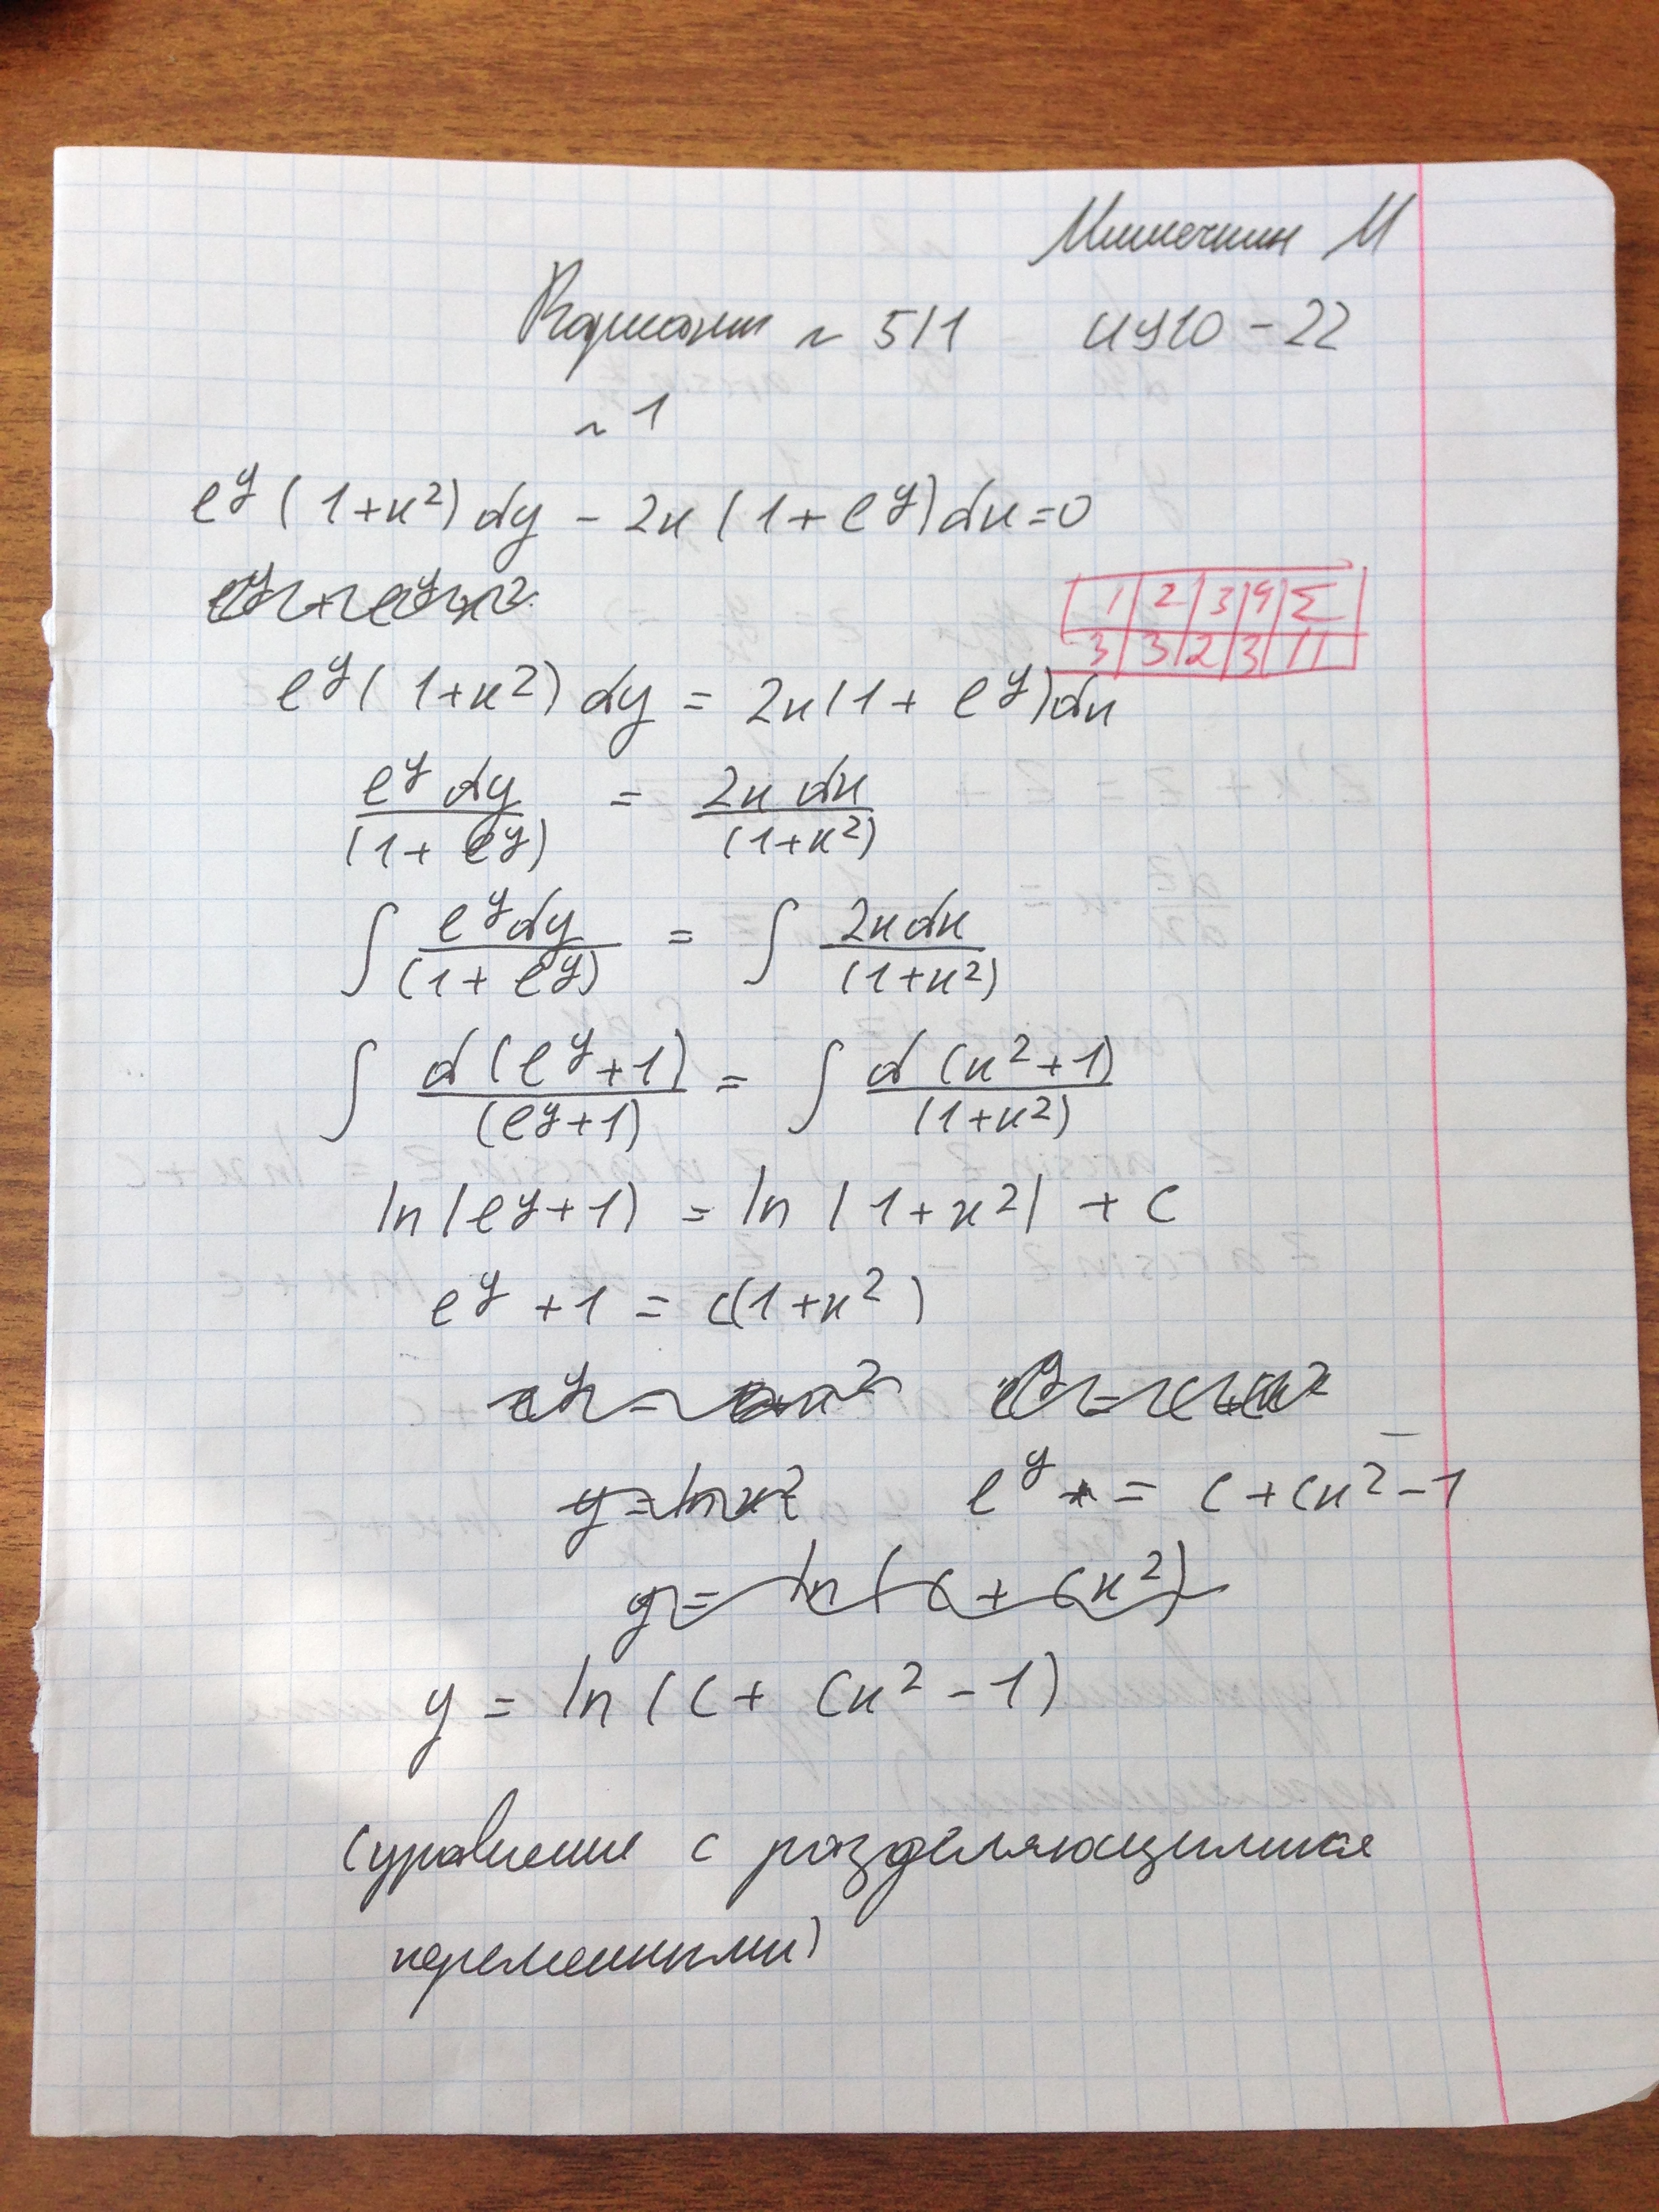 Вариант ~ 5/1 ИУ10-22
~ 1
e^y (1+x²) dy - 2x (1+e^y) dx = 0
1 | 2 | 3 | 4 | Σ
3 | 3 | 2 | 3 | 11
e^y (1+x²) dy = 2x (1 + e^y) dx
e^y dy / (1 + e^y) = 2x dx / (1+x²)
∫ e^y dy / (1 + e^y) = ∫ 2x dx / (1+x²)
∫ d (e^y +1) / (e^y +1) = ∫ d (x² +1) / (1+x²)
ln (e^y +1) = ln |1+x²| + c
e^y + 1 = c(1+x²)
y = ln x²
e^y = c + cx² - 1
y = ln (c + cx²)
y = ln (c + cx² - 1)
(уравнение с разделяющимися
переменными)